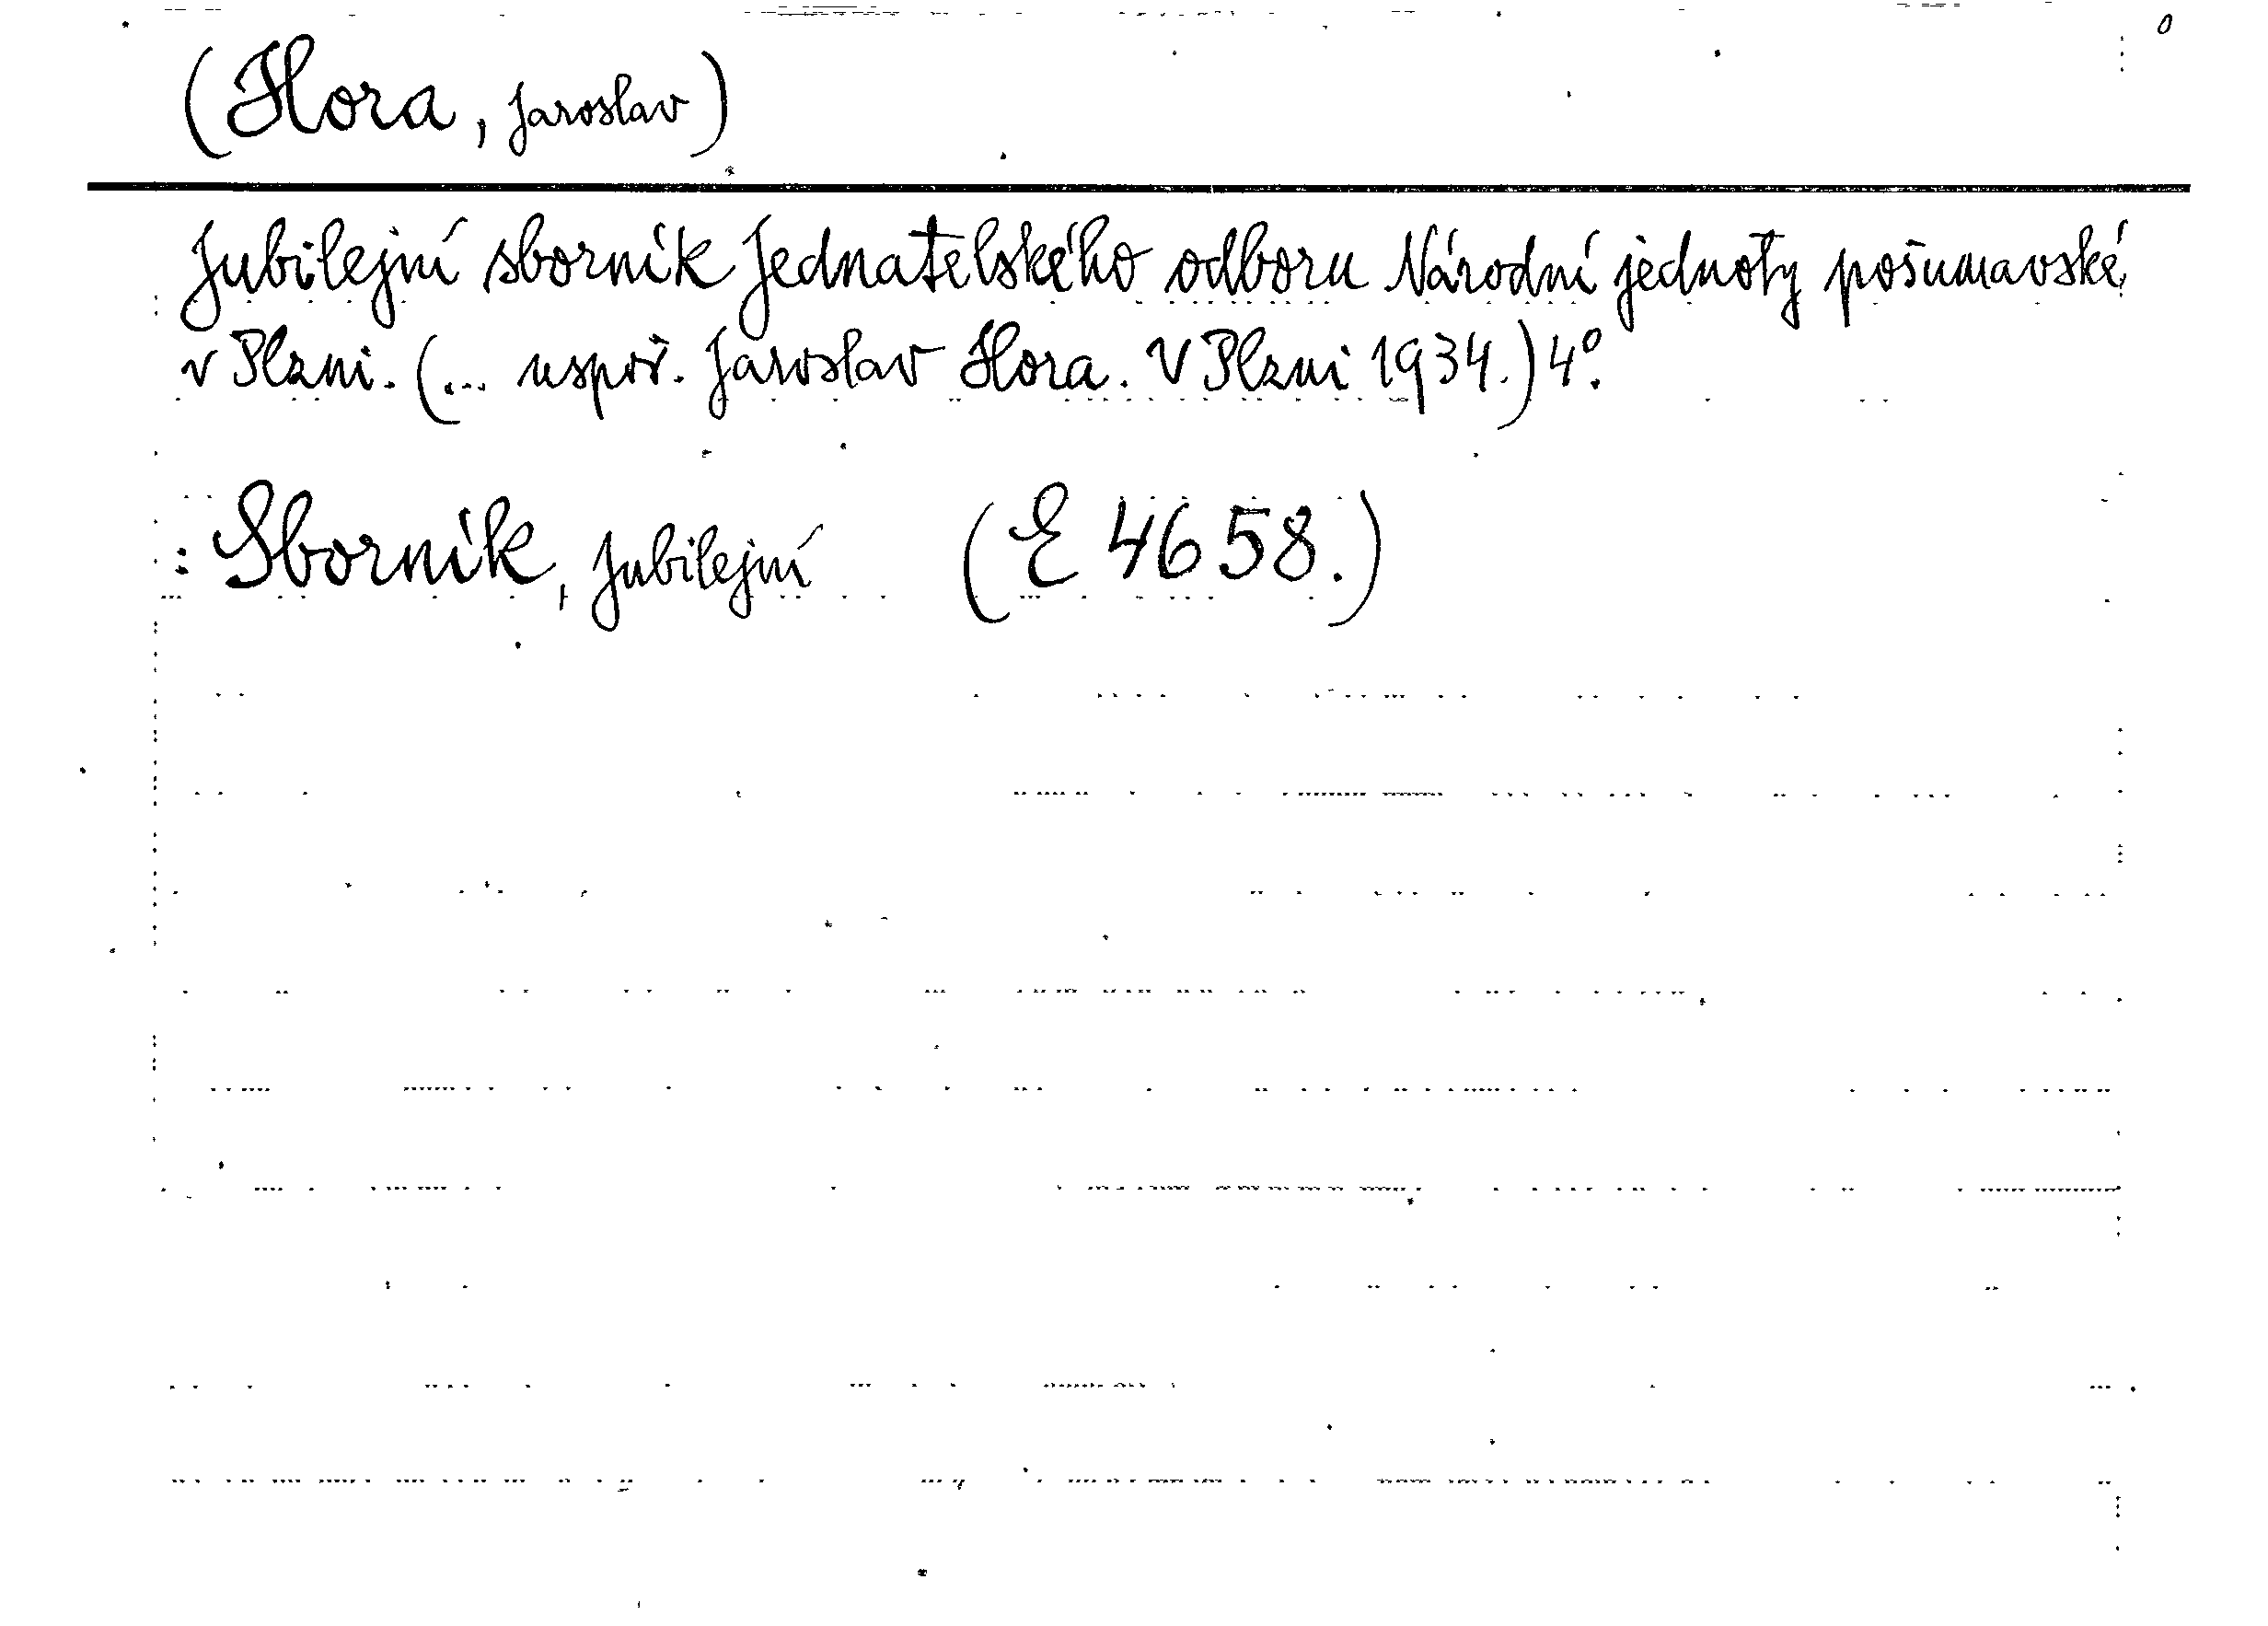 (Hora, Jaroslav)
Jubilejní sborník Jednatelského odboru Národní jednoty pošumavské
v Plzni. (... uspoř. Jaroslav Hora. V Plzni 1934.) 4°.
: Sborník, Jubilejní (E 4658.)